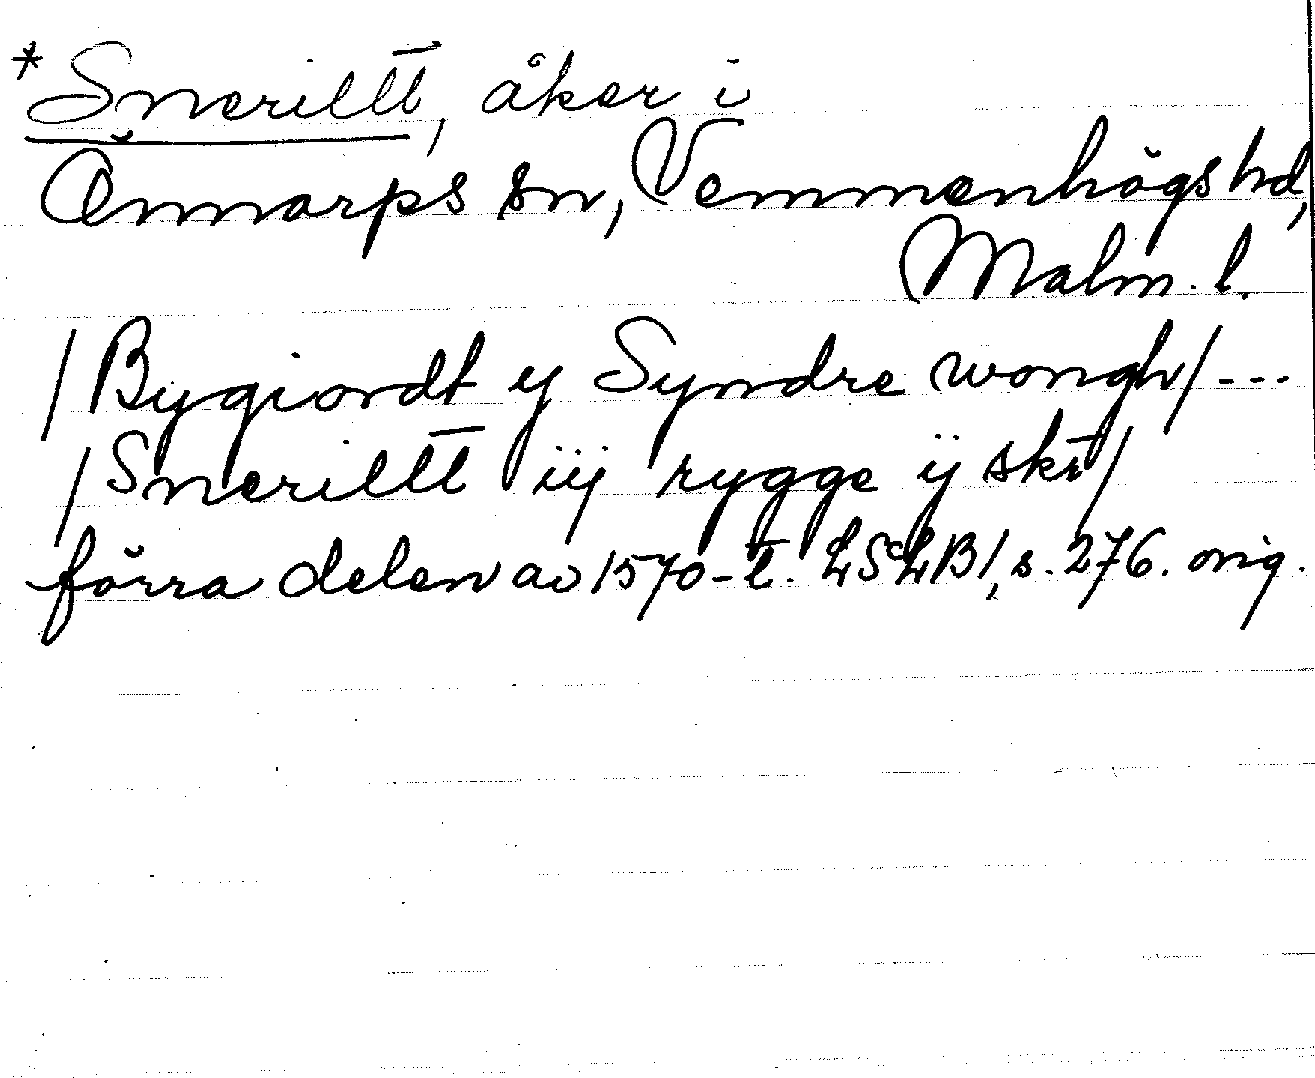 *Snerillt, åker i
Önnarps sn, Vemmenhögs hd,
Malm. l.
/Bygiordt y Syndre wongh/---
/Snerillt iij rygge ij skt/
förra delen av 1570-t. LSLB1, s. 276. orig.